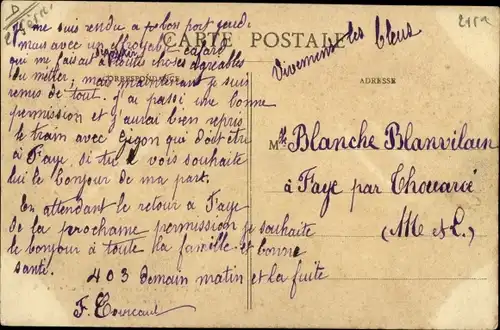 je me suis rendu a bon port jeudi
mais avec un effroyable cafard
qui me faisait songer à toutes choses agréables
du métier; mais maintenant je suis
remis de tout. j'ai passé une bonne
permission et j'aurai bien repris
le train avec Gigon qui doit être
à Faye, si tu le vois souhaite
lui le bonjour de ma part.
En attendant le retour a Faye
de la prochaine permission je souhaite
le bonjour à toute la famille et bonne
santé.
403 demain matin et la fuite
F.
CARTE POSTALE
CORRESPONDANCE
ADRESSE
Vivement les bleus
Mlle Blanche Blanvilain
à Faye par Thouarcé
(M et L)